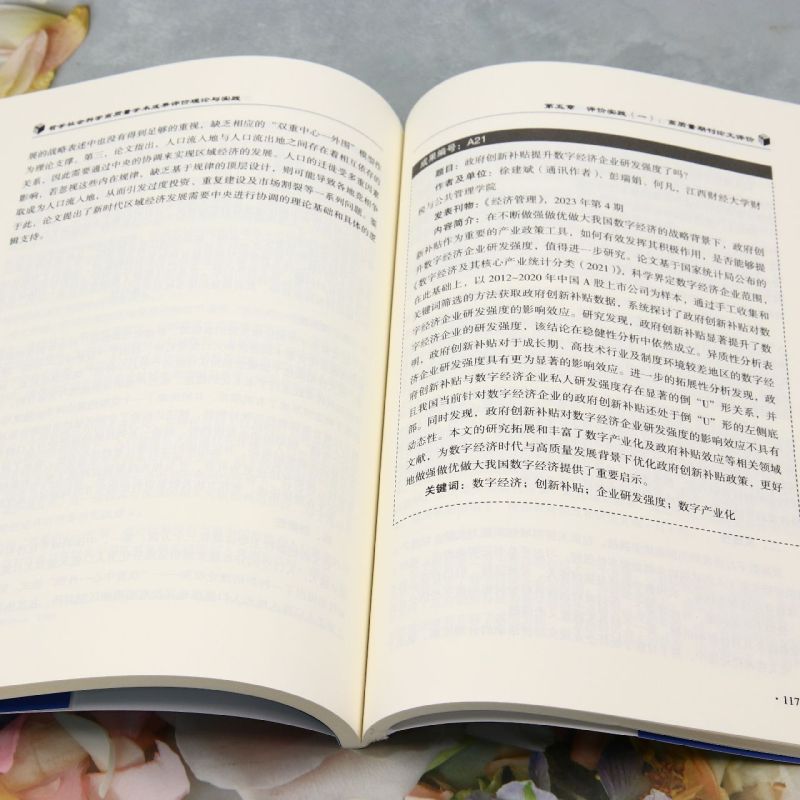 哲学社会科学高质量学术成果评价理论与实践
展的战略表述中也没有得到足够的重视，缺乏相应的“双重中心—外围”模型作
为理论支撑。第三，论文指出，人口流入地与人口流出地之间存在着相互依存的
关系，因此需要通过中央的协调来实现区域经济的发展。人口的迁徙受多重因素
影响，若忽视这些内在规律，缺乏基于规律的顶层设计，则可能导致各地竞相争
取成为人口流入地，从而引发过度投资、重复建设及市场割裂等一系列问题。鉴
于此，论文提出了新时代区域经济发展需要中央进行协调的理论基础和具体的逻
辑支持。
第五章 评价实践（一）：高质量期刊论文评价
成果编号：A21
题目：政府创新补贴提升数字经济企业研发强度了吗？
作者及单位：徐建斌（通讯作者）、彭瑞娟、何凡，江西财经大学财
税与公共管理学院
发表刊物：《经济管理》，2023 年第 4 期
内容简介：在不断做强做优做大我国数字经济的战略背景下，政府创
新补贴作为重要的产业政策工具，如何有效发挥其积极作用，是否能够提
升数字经济企业研发强度，值得进一步研究。论文基于国家统计局公布的
《数字经济及其核心产业统计分类（2021）》，科学界定数字经济企业范围，
在此基础上，以 2012-2020 年中国 A 股上市公司为样本，通过手工收集和
关键词筛选的方法获取政府创新补贴数据，系统探讨了政府创新补贴对数
字经济企业研发强度的影响效应。研究发现，政府创新补贴显著提升了数
字经济企业的研发强度，该结论在稳健性分析中依然成立。异质性分析表
明，政府创新补贴对于成长期、高技术行业及制度环境较差地区的数字经
济企业研发强度具有更为显著的影响效应。进一步的拓展性分析发现，政
府创新补贴与数字经济企业私人研发强度存在显著的倒“U”形关系，并
且我国当前针对数字经济企业的政府创新补贴还处于倒“U”形的左侧底
部。同时发现，政府创新补贴对数字经济企业研发强度的影响效应不具有
动态性。本文的研究拓展和丰富了数字产业化及政府补贴效应等相关领域
文献，为数字经济时代与高质量发展背景下优化政府创新补贴政策，更好
地做强做优做大我国数字经济提供了重要启示。
关键词：数字经济；创新补贴；企业研发强度；数字产业化
· 117